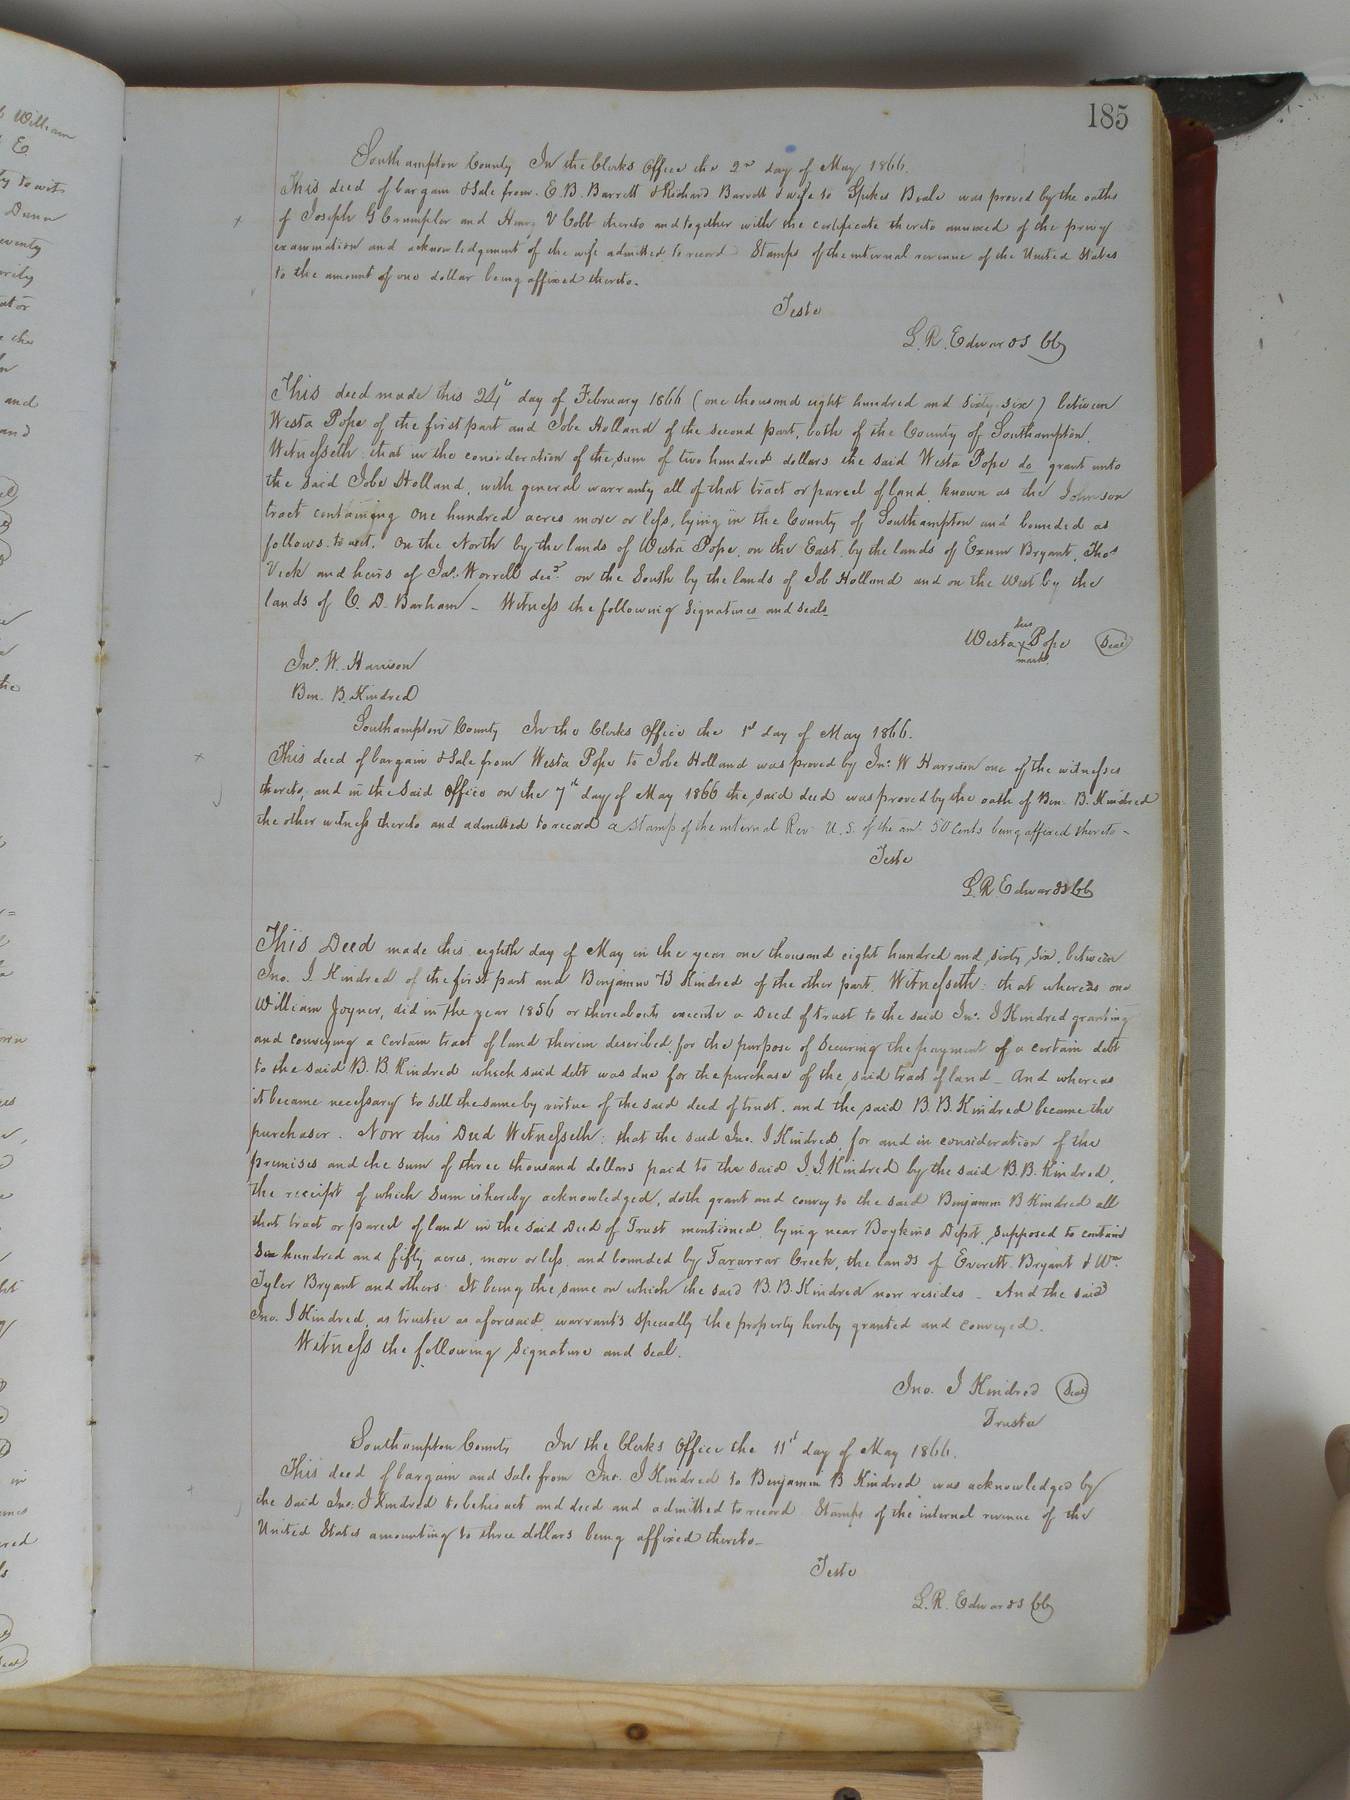 185
Southampton County In the Clerks Office the 2nd day of May 1866.
This deed of bargain & Sale from E. B. Barrett & Richard Barrett & wife to Spikes Beale was proved by the oaths
of Joseph G Crumpler and Henry V Cobb thereto and together with the certificate thereto annexed of the privy
examination and acknowledgement of the wife admitted to record Stamps of the internal revenue of the United States
to the amount of one dollar being affixed thereto.
Teste
L. R. Edwards CC
This deed made this 24th day of February 1866 (one thousand eight hundred and sixty-six) between
Westa Pope of the first part and Jobe Holland of the second part, both of the County of Southampton.
Witnesseth that in the consideration of the sum of two hundred dollars the said Westa Pope do grant unto
the said Jobe Holland, with general warranty all of that tract or parcel of land, known as the Johnson
tract containing one hundred acres more or less, lying in the County of Southampton and bounded as
follows. to wit. On the North by the lands of Westa Pope, on the East, by the lands of Exum Bryant, Thos
Vick and heirs of Jas. Worrell decd. on the South by the lands of Job Holland and on the West by the
lands of C. D. Barham – Witness the following signatures and seals
his
Westa x Pope (Seal)
mark
Jno. W. Harrison
Ben. B. Kindred
Southampton County In the Clerks Office the 1st day of May 1866.
This deed of bargain & Sale from Westa Pope to Jobe Holland was proved by Jno. W Harrison one of the witnesses
thereto, and in the said Office on the 7th day of May 1866 the said deed was proved by the oath of Ben. B. Kindred
the other witness thereto and admitted to record a stamp of the internal Rev. U. S. of the amt. 50 cents being affixed thereto –
Teste
L. R. Edwards CC
This Deed made this eighth day of May in the year one thousand eight hundred and sixty six, between
Jno. I Kindred of the first part and Benjamin B Kindred of the other part. Witnesseth: that whereas one
William Joyner, did in the year 1856 or thereabouts execute a Deed of trust to the said Jno. I Kindred granting
and conveying a certain tract of land therein described, for the purpose of securing the payment of a certain debt
to the said B. B. Kindred which said debt was due for the purchase of the said tract of land – And whereas
it became necessary to sell the same by virtue of the said deed of trust, and the said B. B. Kindred became the
purchaser. Now this Deed Witnesseth: that the said Jno. I Kindred, for and in consideration of the
premises and the sum of three thousand dollars paid to the said J. I. Kindred by the said B. B. Kindred,
the receipt of which sum is hereby acknowledged, doth grant and convey to the said Benjamin B Kindred all
that tract or parcel of land in the said Deed of Trust mentioned, lying near Boykins Depot, supposed to contain
Six hundred and fifty acres, more or less, and bounded by Tararrar Creek, the lands of Everett Bryant & Wm.
Tyler Bryant and others. It being the same on which the said B. B. Kindred now resides – And the said
Jno. I Kindred, as trustee as aforesaid, warrants specially the property hereby granted and conveyed.
Witness the following signature and seal.
Jno. I Kindred (Seal)
Trustee
Southampton County In the Clerks Office the 11th day of May 1866.
This deed of bargain and sale from Jno. I Kindred to Benjamin B Kindred was acknowledged by
the said Jno. I Kindred to be his act and deed and admitted to record Stamps of the internal revenue of the
United States amounting to three dollars being affixed thereto –
Teste
L. R. Edwards CC